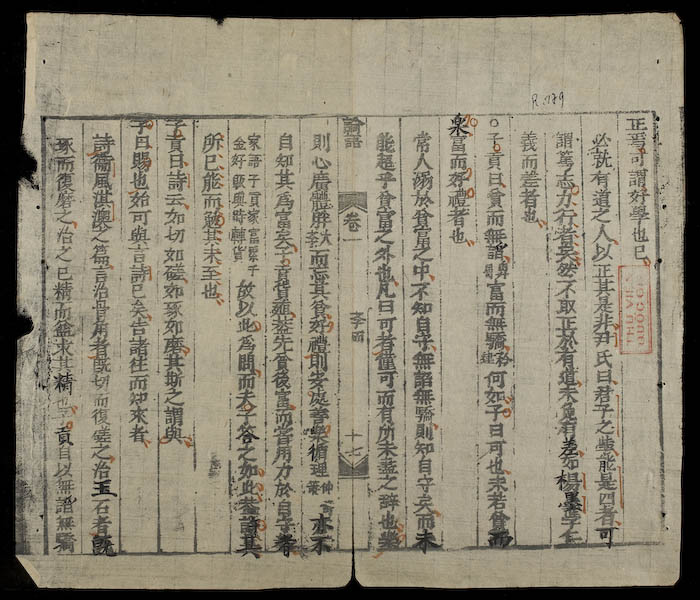 R.179
正焉可謂好學也已
必就有道之人以正其是非尹氏曰君子之學能是四者可
謂篤志力行者矣然不取正於有道未免有差如楊墨學仁
義而差者也
子貢曰貧而無諂富而無驕何如子曰可也未若貧而
樂富而好禮者也
常人溺於貧富之中不知自守無諂無驕則知自守矣而未
能超乎貧富之外也凡曰可者僅可而有所未盡之辭也樂
論語 卷一 李而 十七
則心廣體胖大李而忘其貧好禮則安處善樂循理仲舒策亦不
自知其為富矣子貢貨殖蓋先貧後富而嘗用力於自守者
家語子貢家富累千金好販與時轉貨故以此為問而夫子答之如此蓋許其
所已能而勉其未至也
子貢曰詩云如切如磋如琢如磨其斯之謂與
子曰賜也始可與言詩已矣告諸往而知來者
詩衛風淇澳之篇言治骨角者既切而復磋之治玉石者既
琢而復磨之治之已精而益求其精也子貢自以無諂無驕